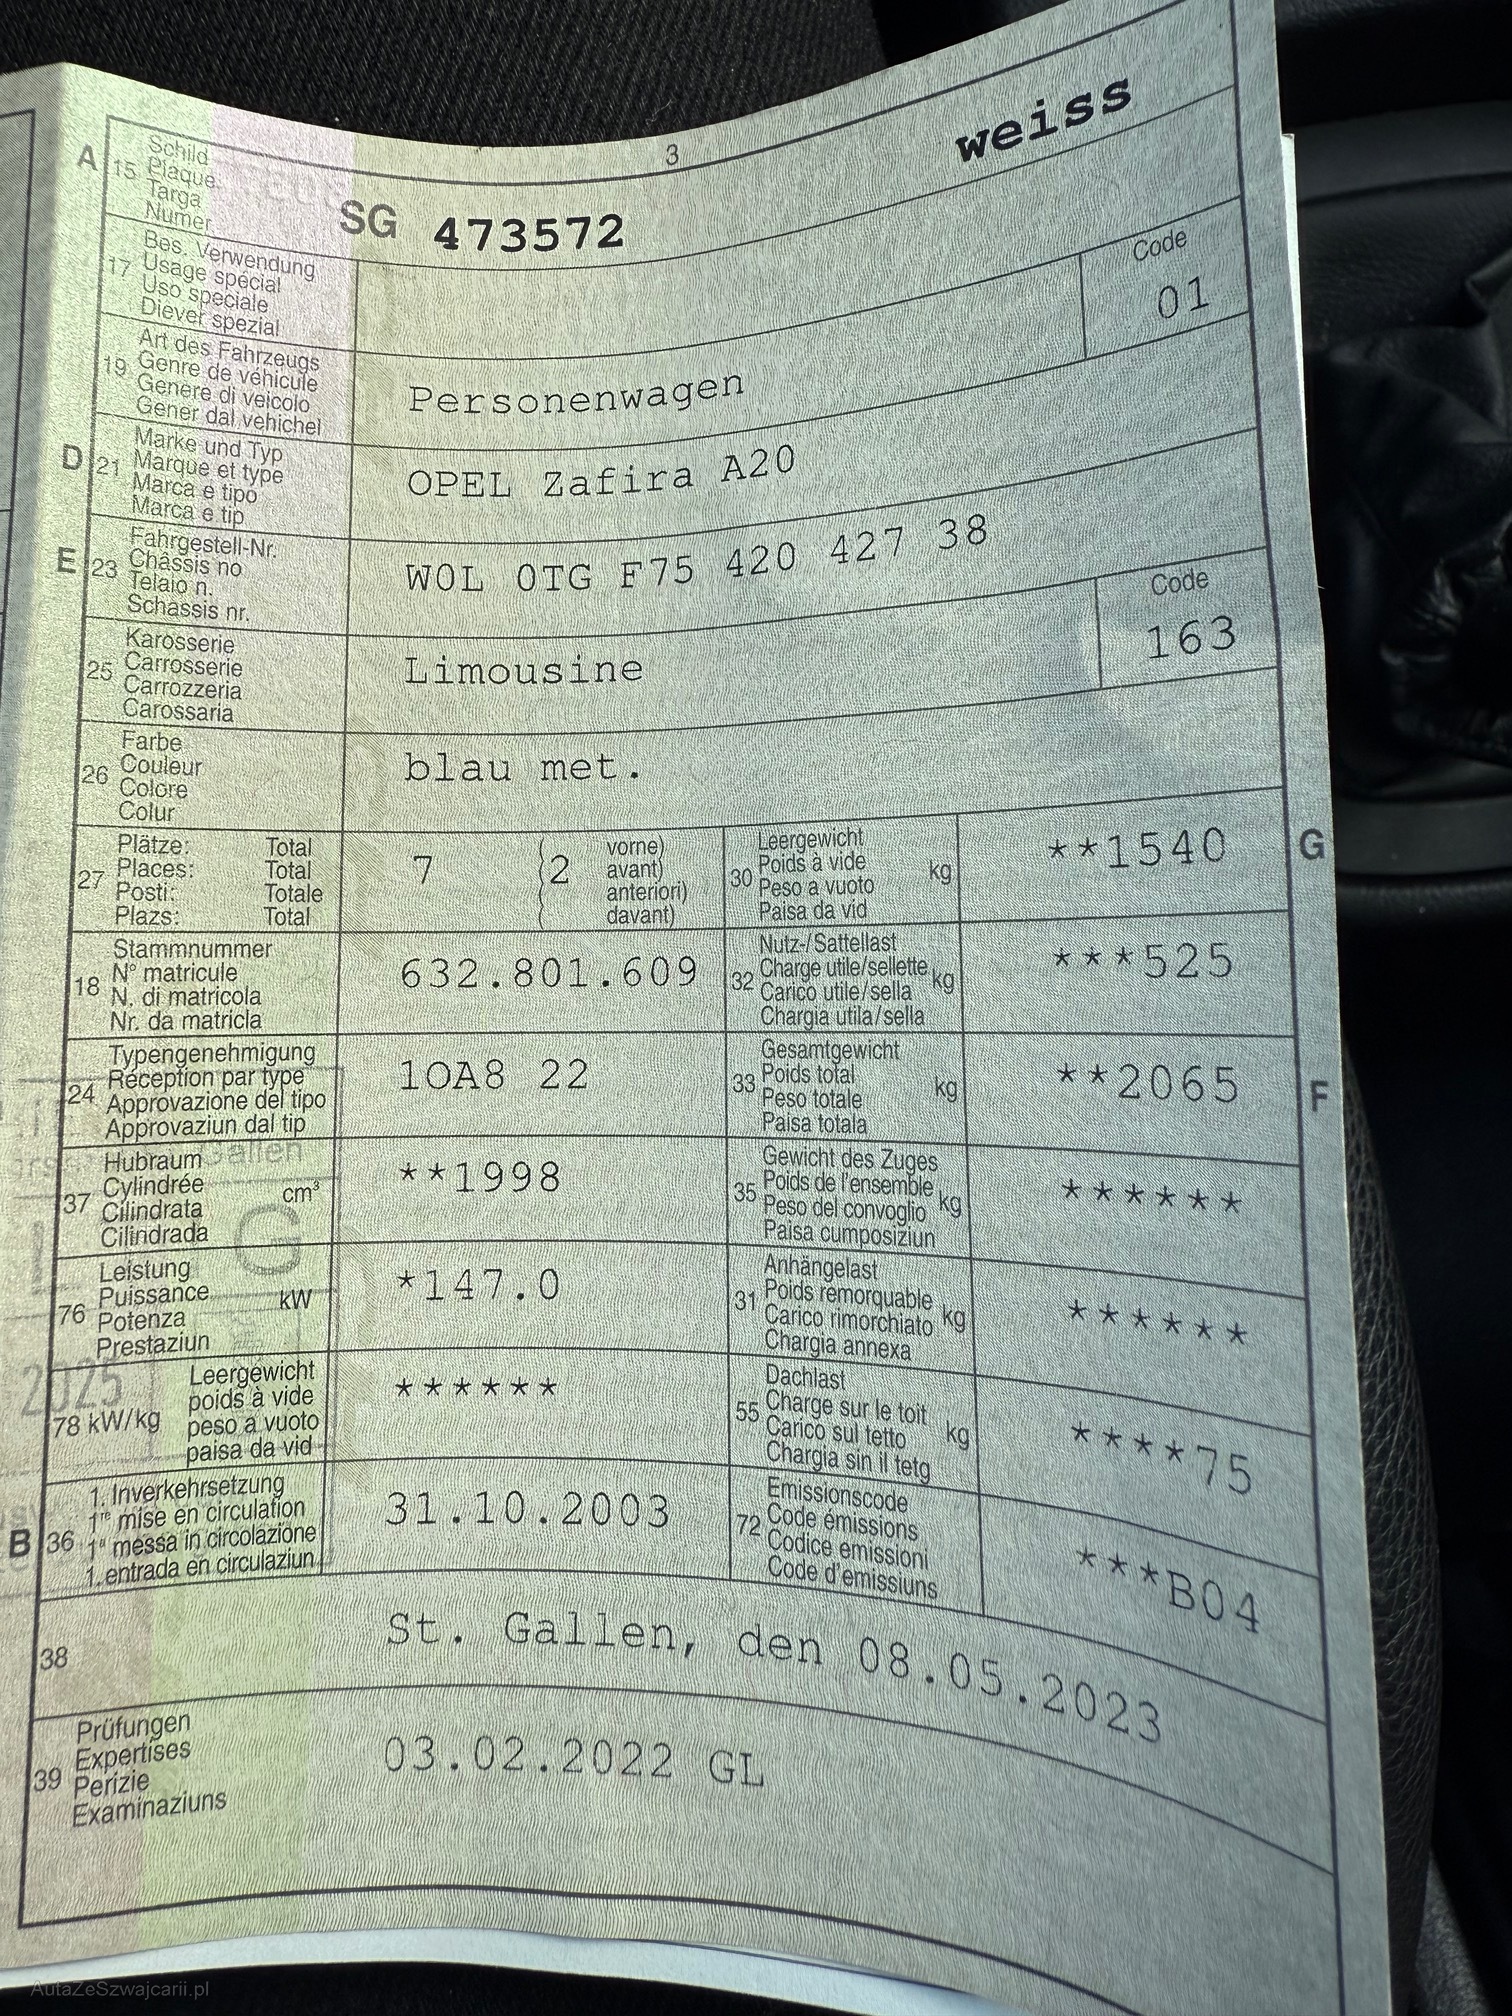 3
weiss
A 15 Schild
Plaque
Targa
Numer
SG 473572
17 Bes. Verwendung
Usage spécial
Uso speciale
Diever spezial
Code
01
19 Art des Fahrzeugs
Genre de véhicule
Genere di veicolo
Gener dal vehichel
Personenwagen
D 21 Marke und Typ
Marque et type
Marca e tipo
Marca e tip
OPEL Zafira A20
E 23 Fahrgestell-Nr.
Châssis no
Telaio n.
Schassis nr.
W0L 0TG F75 420 427 38
25 Karosserie
Carrosserie
Carrozzeria
Carossaria
Limousine
Code
163
26 Farbe
Couleur
Colore
Colur
blau met.
27 Plätze: Total
Places: Total
Posti: Totale
Plazs: Total
7 (2 vorne)
avant)
anteriori)
davant)
30 Leergewicht
Poids à vide
Peso a vuoto
Paisa da vid
kg
**1540
G
18 Stammnummer
N° matricule
N. di matricola
Nr. da matricla
632.801.609
32 Nutz-/Sattellast
Charge utile/sellette
Carico utile/sella
Chargia utila/sella
kg
***525
24 Typengenehmigung
Réception par type
Approvazione del tipo
Approvaziun dal tip
1OA8 22
33 Gesamtgewicht
Poids total
Peso totale
Paisa totala
kg
**2065
F
37 Hubraum
Cylindrée
Cilindrata
Cilindrada
cm³
**1998
35 Gewicht des Zuges
Poids de l'ensemble
Peso del convoglio
Paisa cumposiziun
kg
******
76 Leistung
Puissance
Potenza
Prestaziun
kW
*147.0
31 Anhängelast
Poids remorquable
Carico rimorchiato
Chargia annexa
kg
******
2025
78 kW/kg Leergewicht
poids à vide
peso a vuoto
paisa da vid
******
55 Dachlast
Charge sur le toit
Carico sul tetto
Chargia sin il tetg
kg
****75
B 36 1. Inverkehrsetzung
1re mise en circulation
1a messa in circolazione
1. entrada en circulaziun
31.10.2003
72 Emissionscode
Code émissions
Codice emissioni
Code d'emissiuns
***B04
38 St. Gallen, den 08.05.2023
39 Prüfungen
Expertises
Perizie
Examinaziuns
03.02.2022 GL
AutaZeSzwajcarii.pl